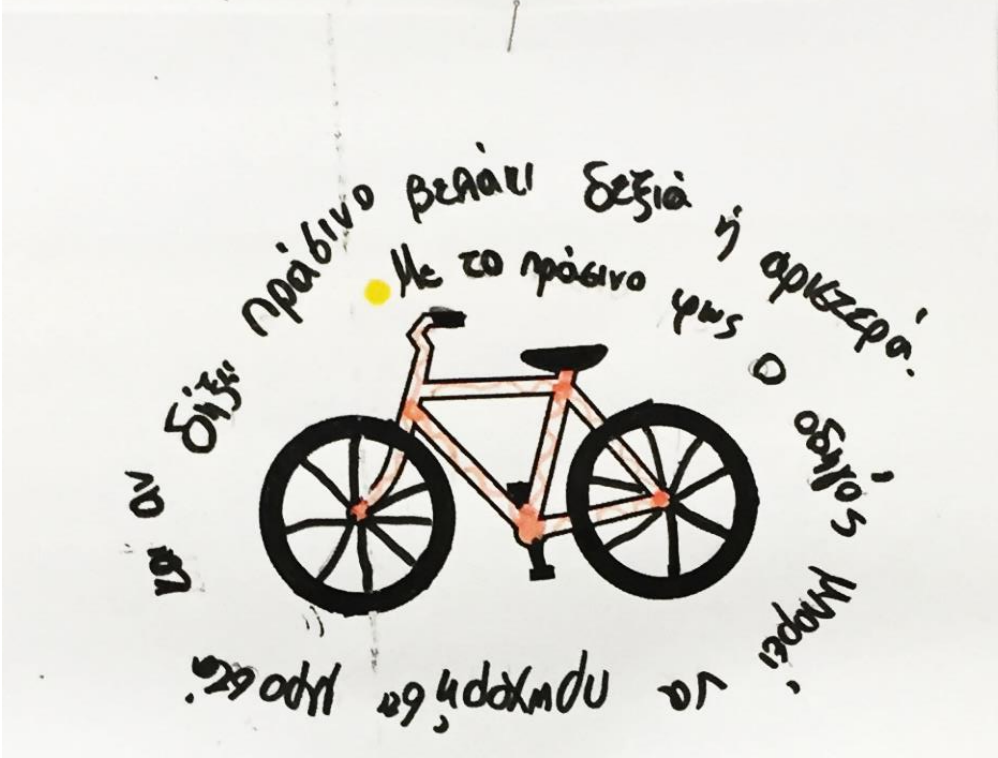 Με το πράσινο φως ο οδηγός μπορεί να προχωρήσει μπροστά και αν δήξει πράσινο βελάκι δεξιά ή αριστερά.